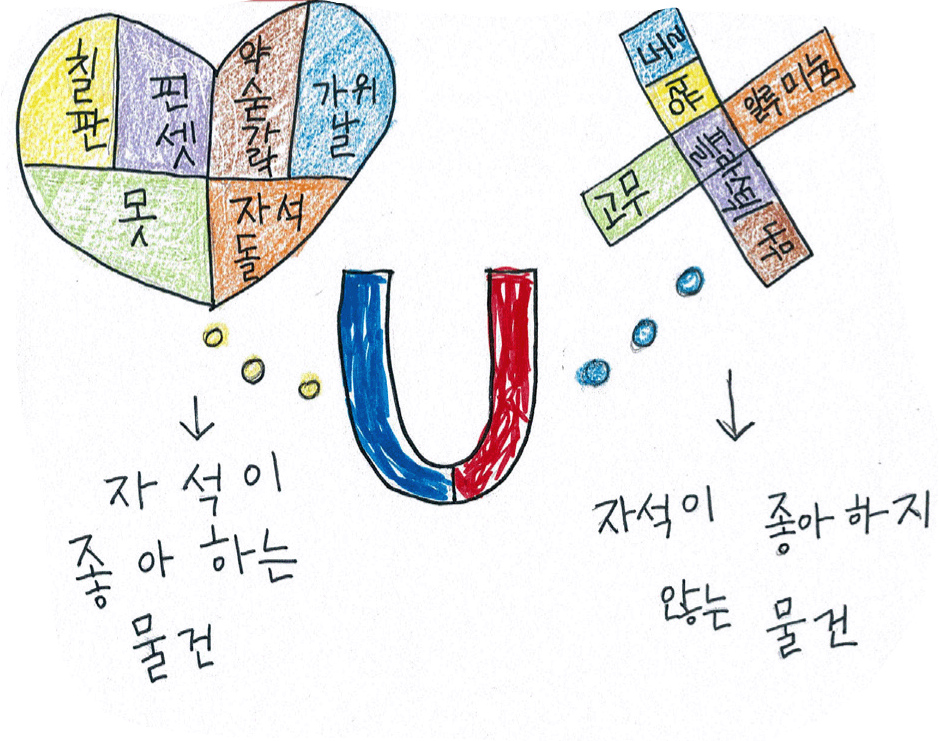 칠판
핀셋
약숟가락
가위날
못
자석돌
알루미늄
고무
플라스틱
나무
자석이
좋아하는
물건
자석이 좋아하지
않는 물건